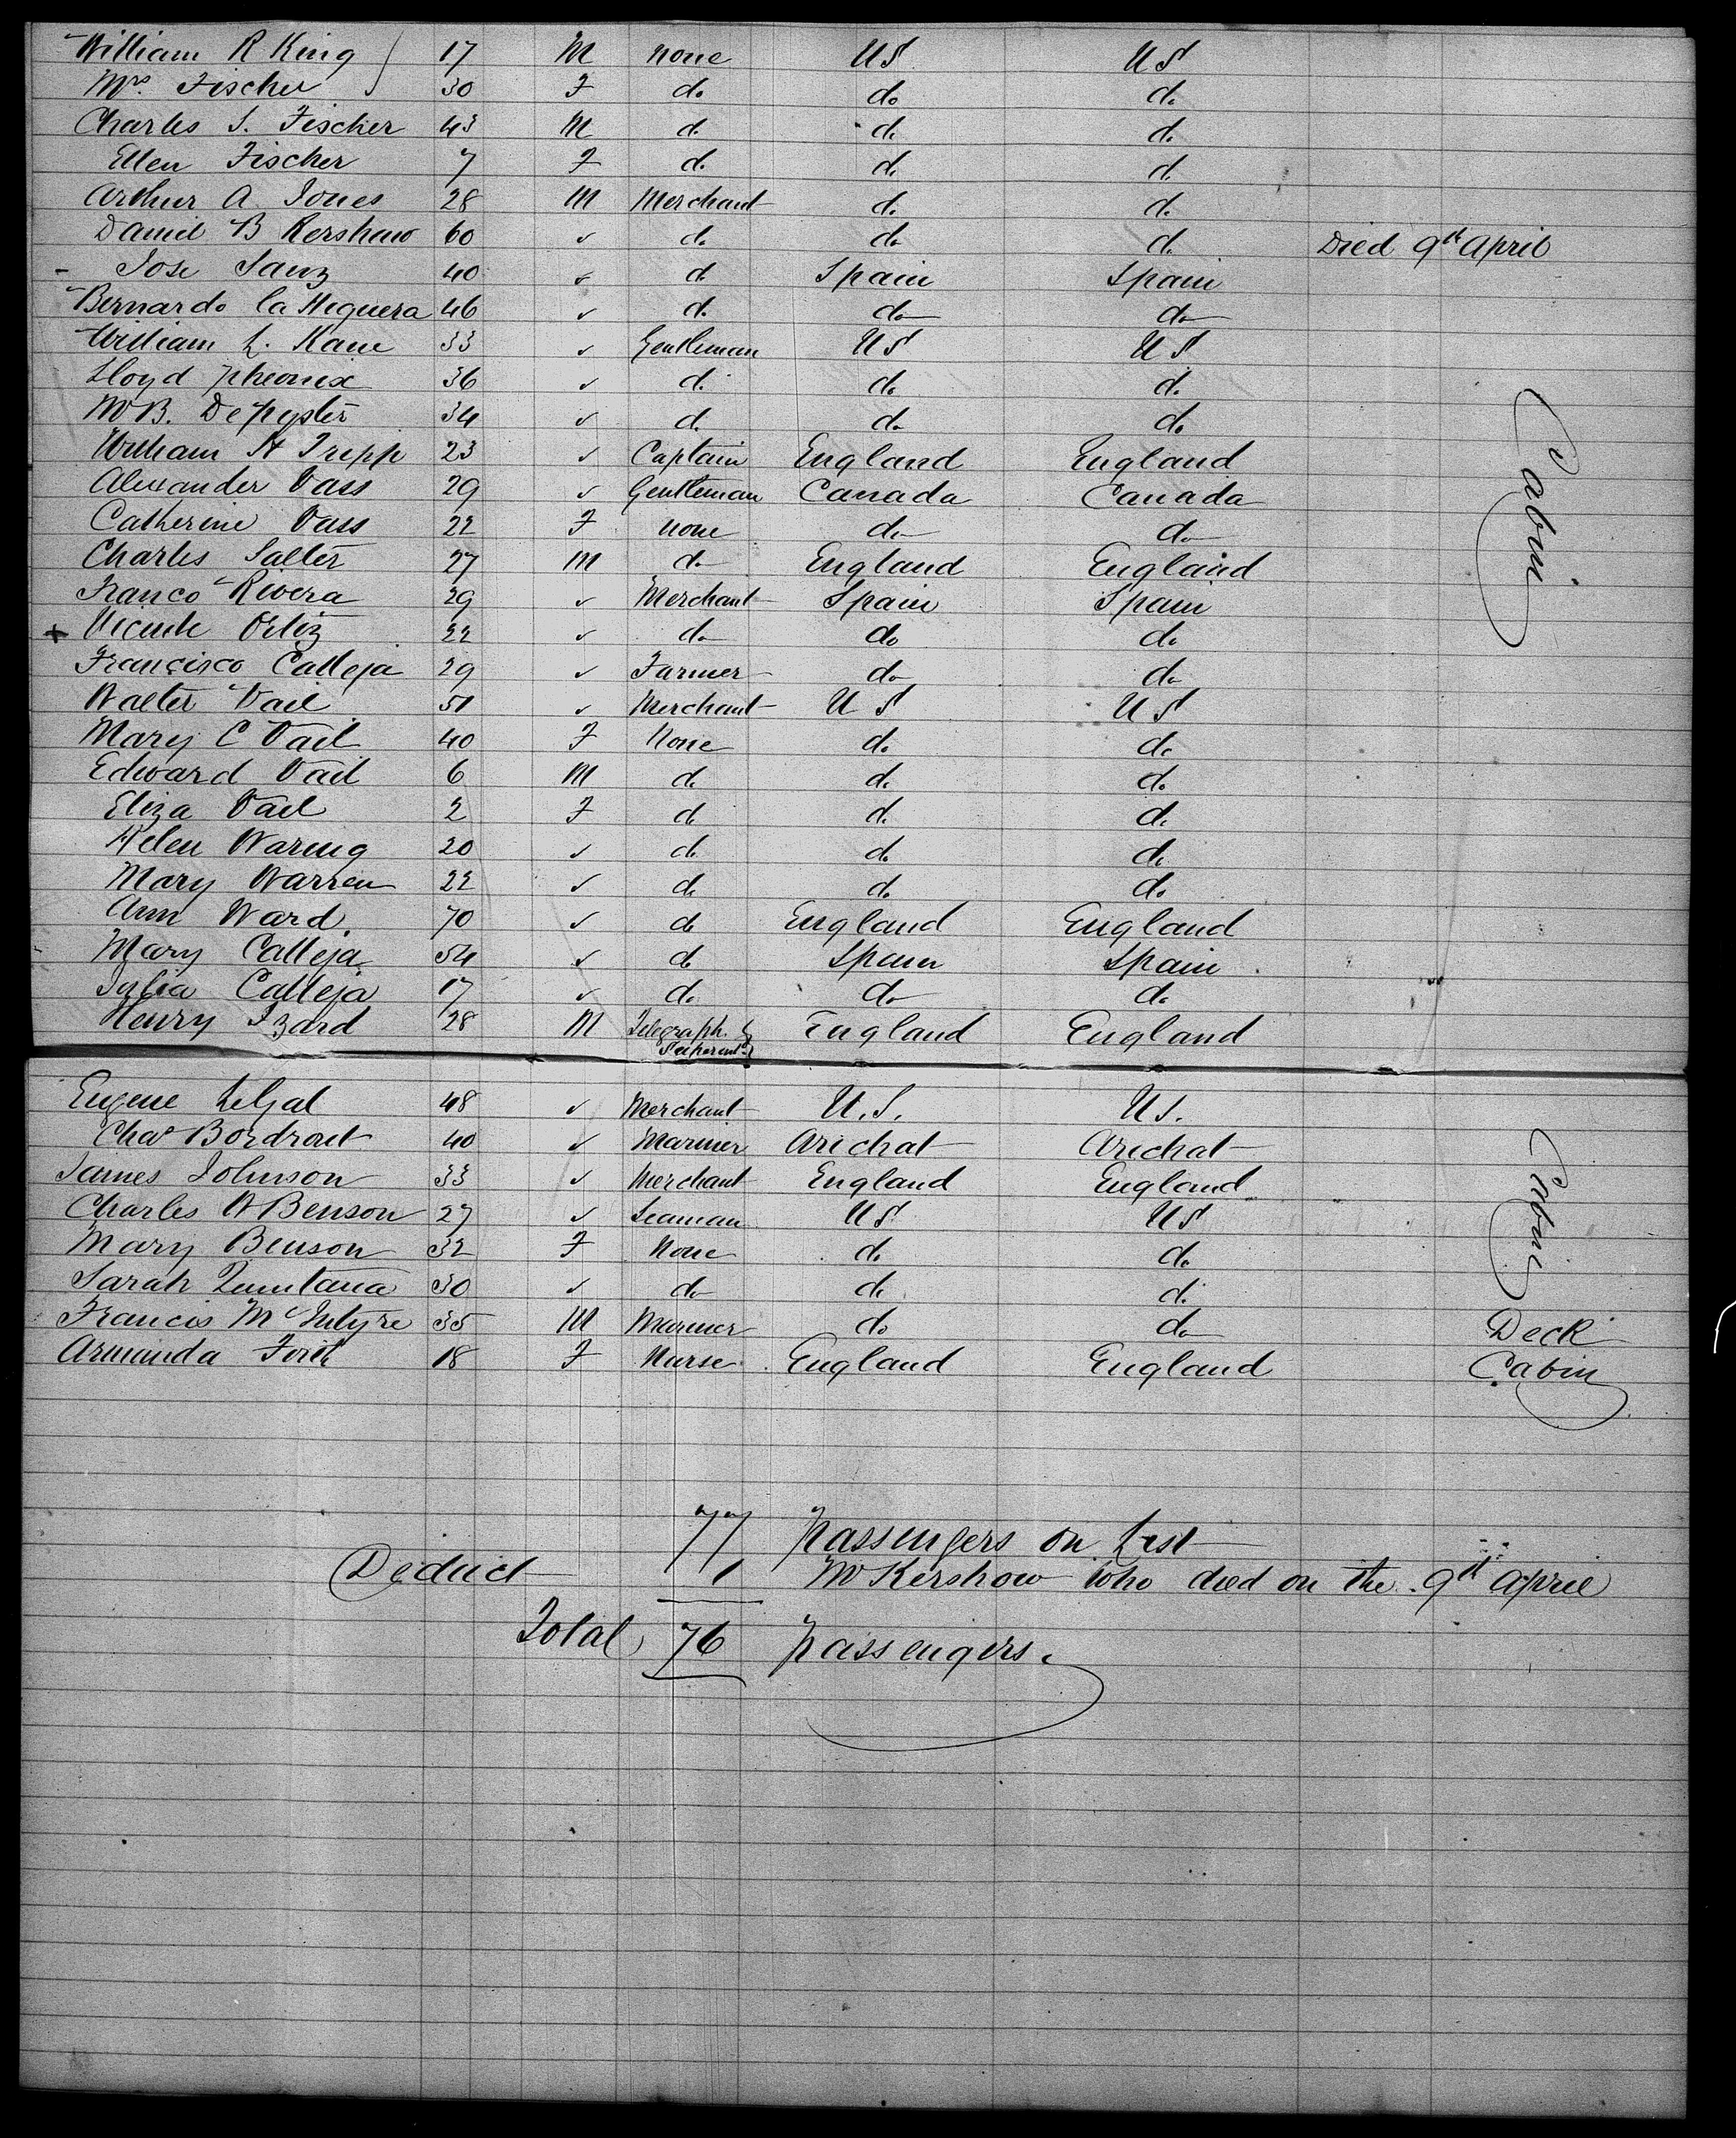 William R King 17 M none US US
Mrs. Fischer 30 F do do do
Charles S. Fischer 43 M do do do
Ellen Fischer 7 F do do do
Arthur A. Jones 28 M Merchant do do
Daniel B Kershaw 60 ✓ do do do Died 9th April
Jose Sanz 40 ✓ do Spain Spain
Bernardo la Higuera 46 ✓ do do do
William L. Kane 33 ✓ Gentleman US US
Lloyd Pheonix 36 ✓ do do do
W B. DePyster 34 ✓ do do do
William H Tripp 23 ✓ Captain England England
Alexander Vass 29 ✓ Gentleman Canada Canada
Catherine Vass 22 F none do do
Charles Salter 27 M do England England
Franco Rivera 29 ✓ Merchant Spain Spain
+ Vicente Ortiz 22 ✓ do do do
Francisco Calleja 29 ✓ Farmer do do
Walter Vail 51 ✓ Merchant US US
Mary C Vail 40 F None do do
Edward Vail 6 M do do do
Eliza Vail 2 F do do do
Helen Waring 20 ✓ do do do
Mary Warren 22 ✓ do do do
Ann Ward. 70 ✓ do England England
Mary Calleja 54 ✓ do Spain Spain
Julia Calleja 17 ✓ do do do
Henry Izard 28 M Telegraph. England England
Cabin
Eugene LeGal 48 ✓ Merchant U.S. US.
Chas Bordrout 40 ✓ Mariner Arichat Arichat
James Johnson 33 ✓ Merchant England England
Charles W Benson 27 ✓ Seaman US US
Mary Benson 32 F None do do
Sarah Quintana 30 ✓ do do do
Cabin
Francis McIntyre 35 M Mariner do do Deck
Armanda 18 F Nurse England England Cabin
77 Passengers on List
Deduct 1 Mr Kershaw who died on the 9th April
Total 76 Passengers.